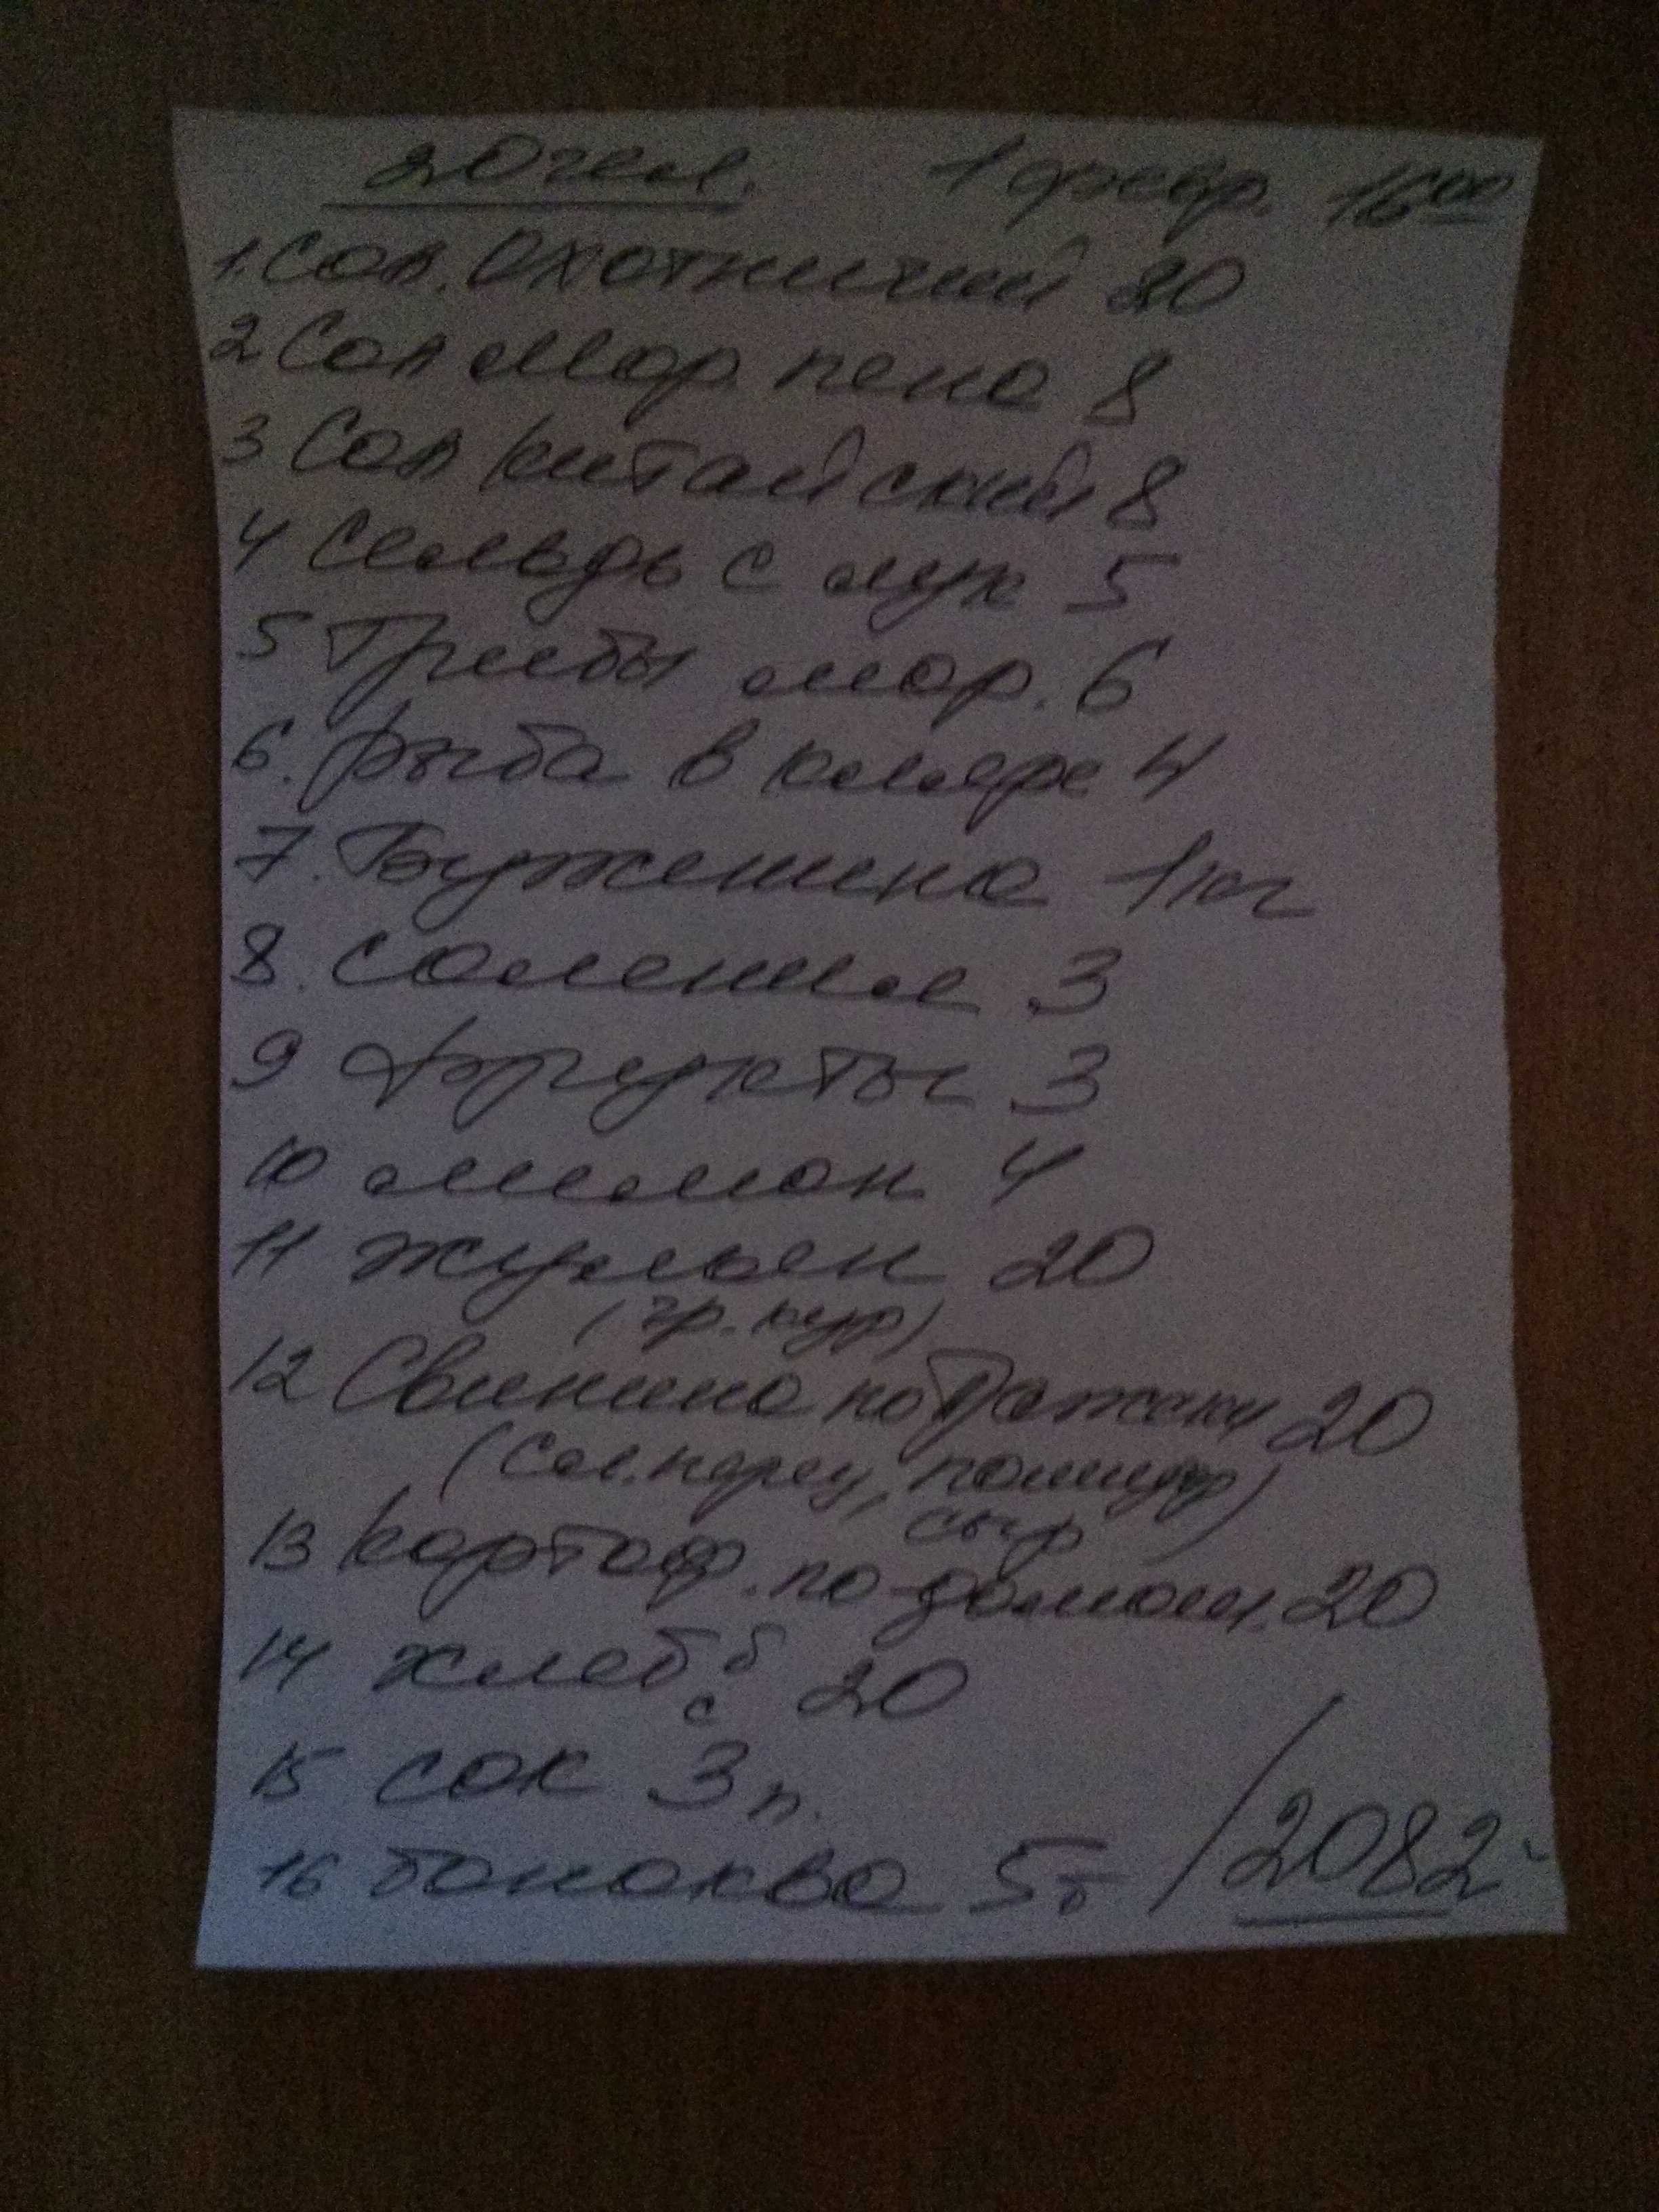 20 чел. 1 февр. 16 00
1. Сал. Охотничий 20
2 Сал Мор. пена 8
3 Сал китайский 8
4 Сельдь с лук 5
5 Грибы мар. 6
6. Рыба в кляре 4
7. Буженина 1 кг
8. соления 3
9 Фрукты 3
10 лимон 4
11 жульен 20
(гр. кур)
12 Свинина по 20
(сл. перец, помидор)
сыр
13 картоф. по-домаш. 20
14 хлеб б 20
с
15 сок 3 п.
16 бонаква 5 б
/2082